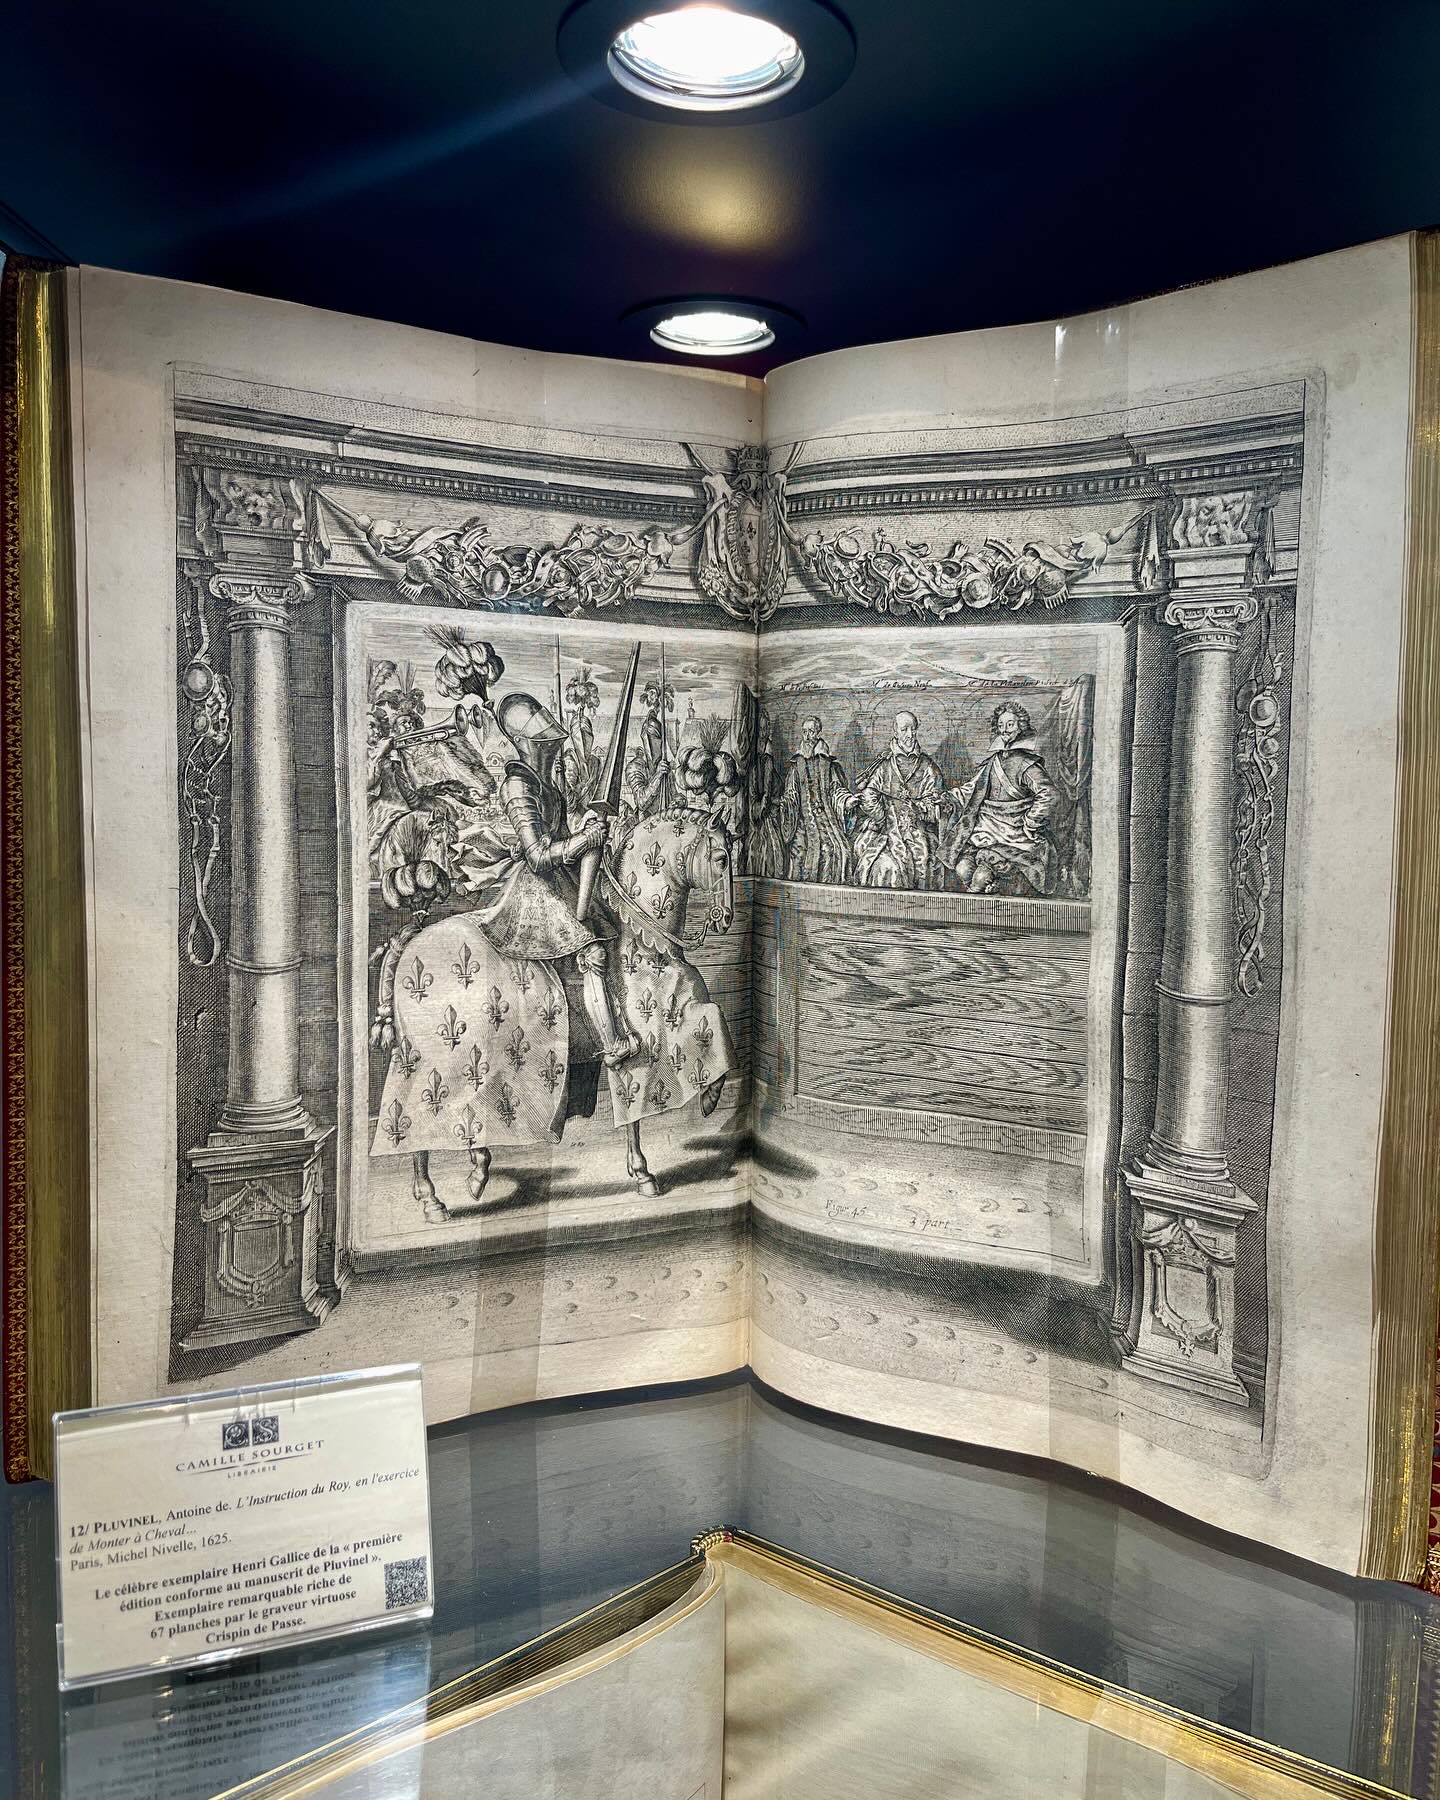 Mr de Castau Neuf
Figur 45 3 part
CS
CAMILLE SOURGET
LIBRAIRIE
12/ PLUVINEL, Antoine de. L'Instruction du Roy, en l'exercice
de Monter à Cheval...
Paris, Michel Nivelle, 1625.
Le célèbre exemplaire Henri Gallice de la « première
édition conforme au manuscrit de Pluvinel ».
Exemplaire remarquable riche de
67 planches par le graveur virtuose
Crispin de Passe.